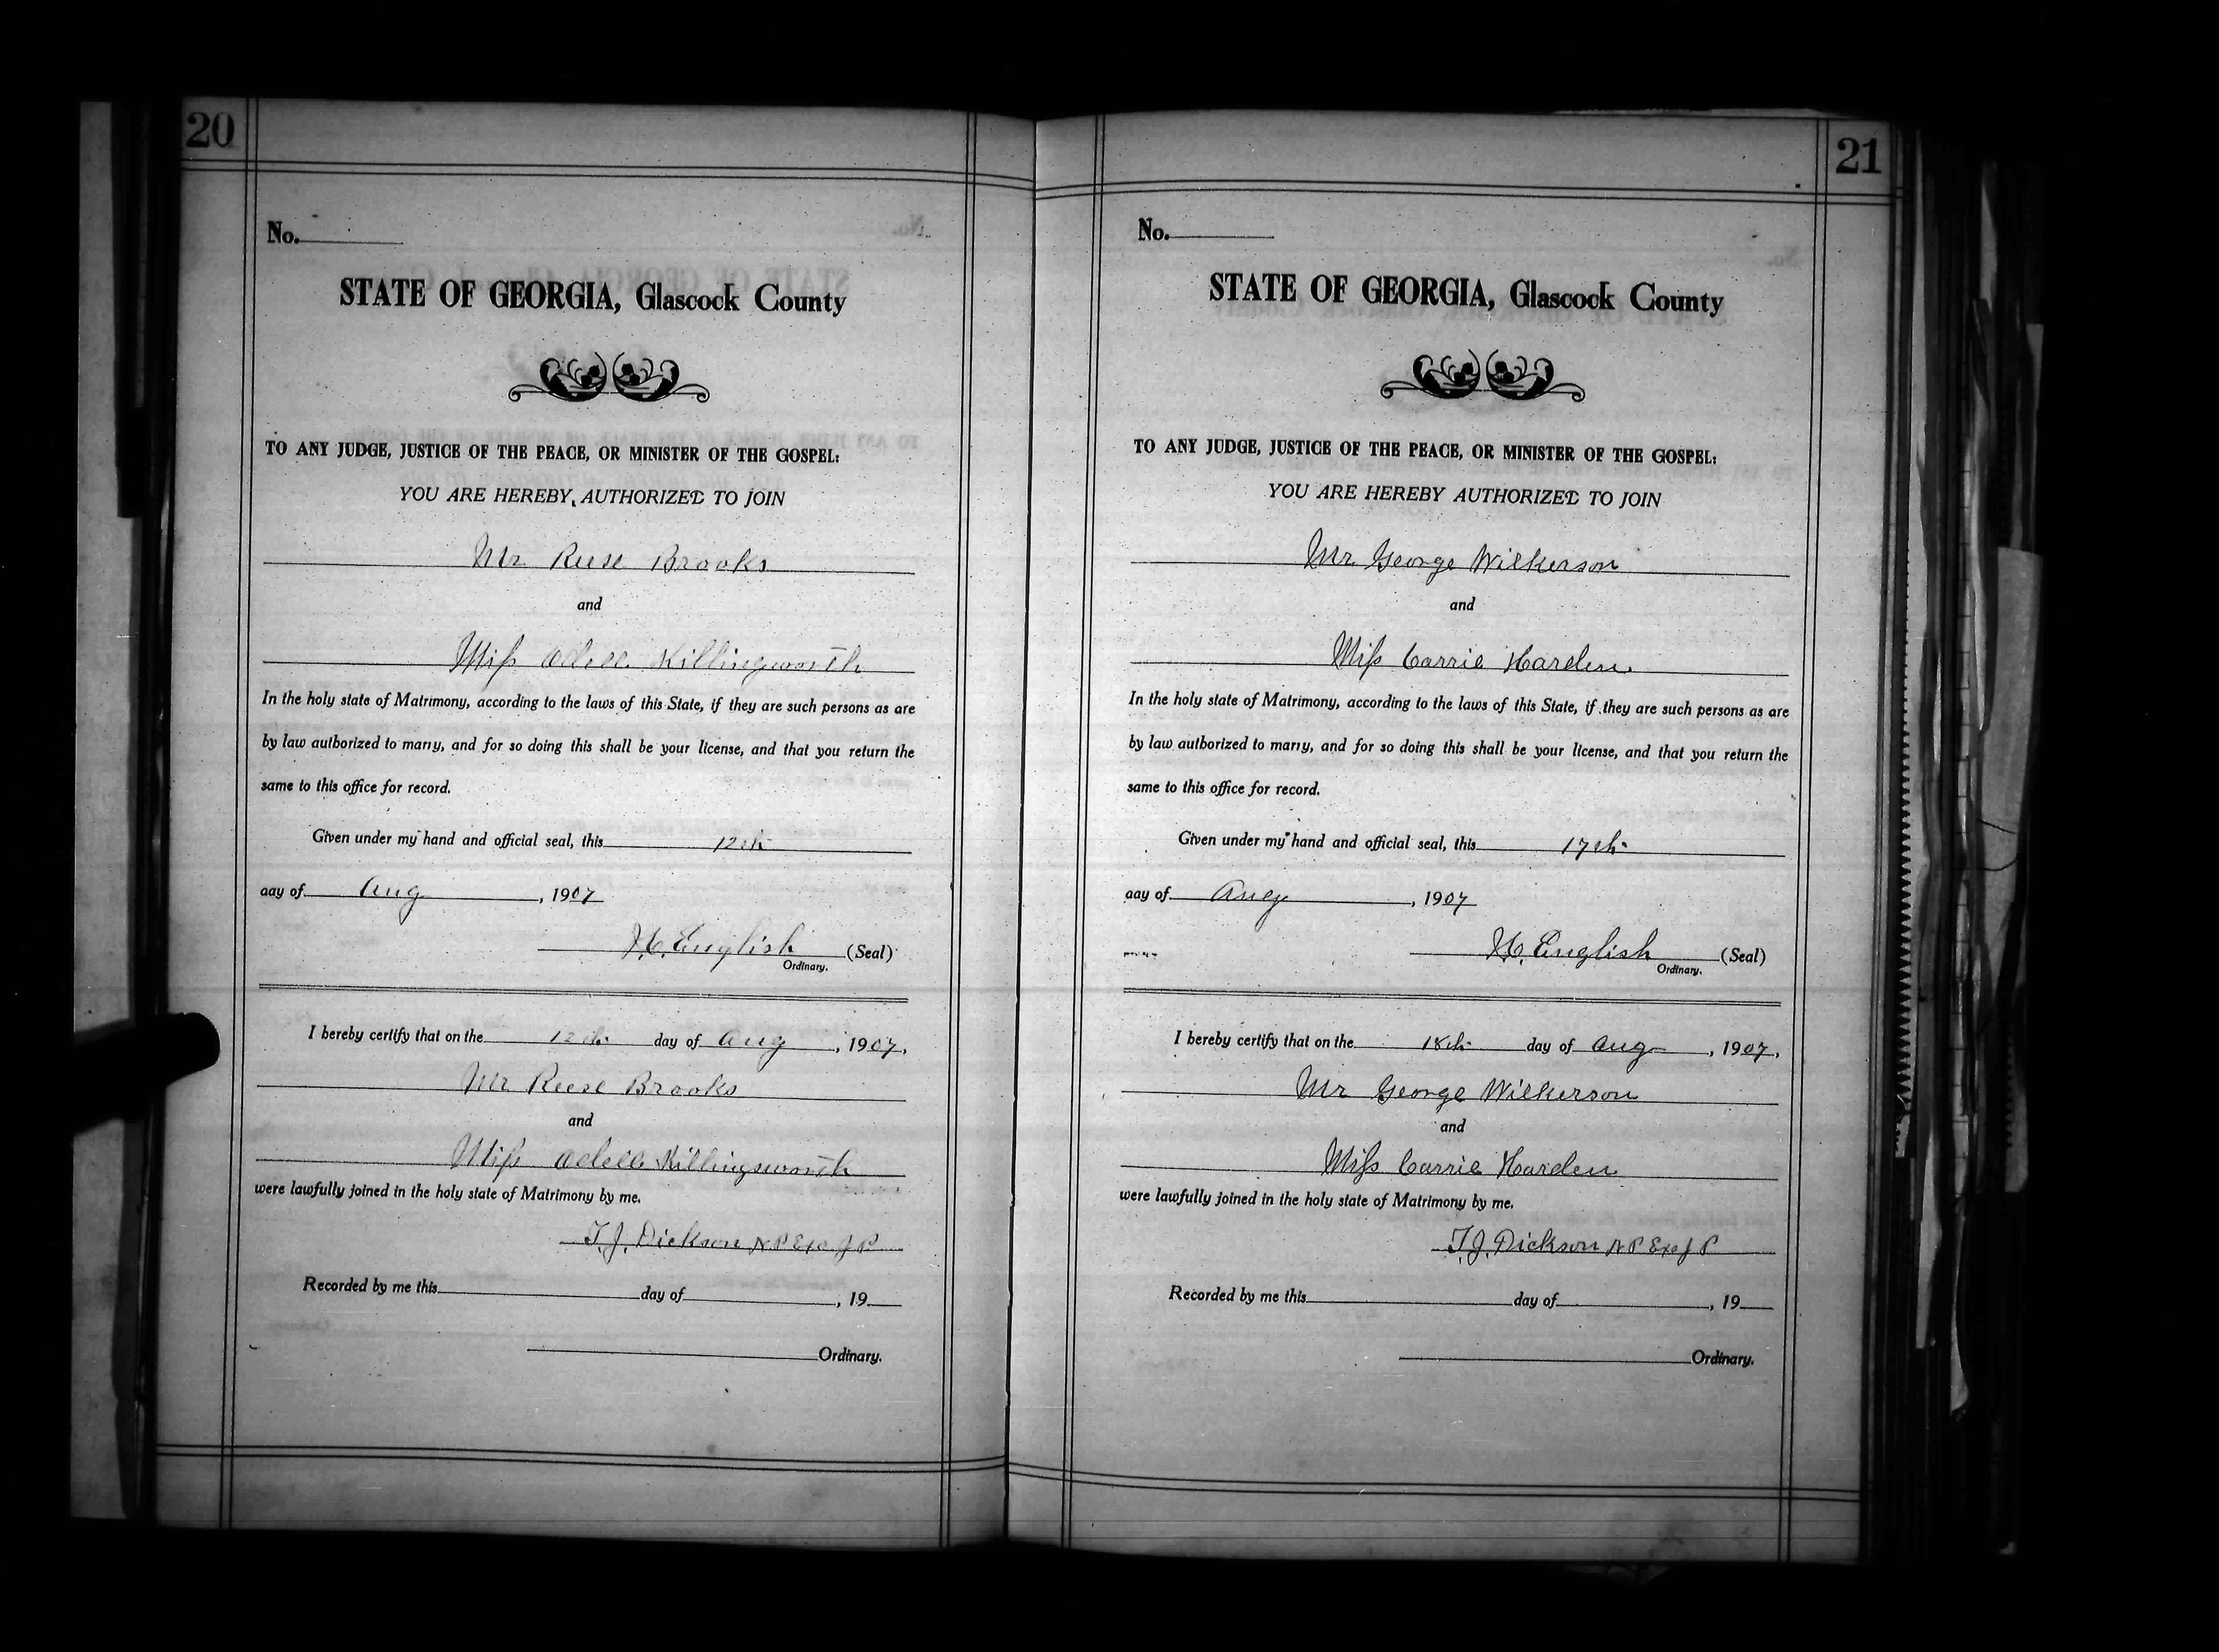 20
No.
STATE OF GEORGIA, Glascock County
TO ANY JUDGE, JUSTICE OF THE PEACE, OR MINISTER OF THE GOSPEL:
YOU ARE HEREBY AUTHORIZED TO JOIN
Mr Reese Brooks
and
Miss Odell Killingsworth
In the holy state of Matrimony, according to the laws of this State, if they are such persons as are
by law authorized to marry, and for so doing this shall be your license, and that you return the
same to this office for record.
Given under my hand and official seal, this 12th
day of Aug, 1907
English (Seal)
Ordinary.
I hereby certify that on the 12th day of Aug, 1907,
Mr Reese Brooks
and
Miss Odell Killingsworth
were lawfully joined in the holy state of Matrimony by me.
T.J. Dickson N P Exo J P
Recorded by me this day of , 19
Ordinary.
21
No.
STATE OF GEORGIA, Glascock County
TO ANY JUDGE, JUSTICE OF THE PEACE, OR MINISTER OF THE GOSPEL:
YOU ARE HEREBY AUTHORIZED TO JOIN
Mr. George Wilkerson
and
Miss Carrie Harden
In the holy state of Matrimony, according to the laws of this State, if they are such persons as are
by law authorized to marry, and for so doing this shall be your license, and that you return the
same to this office for record.
Given under my hand and official seal, this 17th
day of Aug, 1907
English (Seal)
Ordinary.
I hereby certify that on the 18th day of Aug, 1907,
Mr George Wilkerson
and
Miss Carrie Harden
were lawfully joined in the holy state of Matrimony by me.
T.J. Dickson N P Exo J P
Recorded by me this day of , 19
Ordinary.